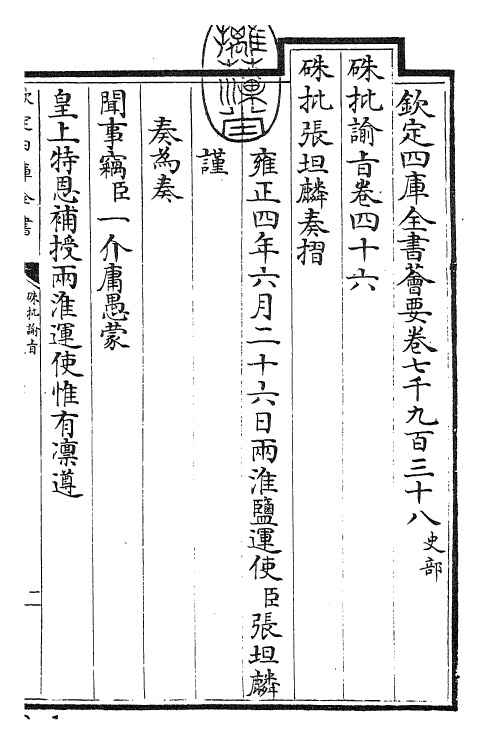 欽定四庫全書薈要卷七千九百三十八史部
硃批諭旨卷四十六
硃批張坦麟奏摺
雍正四年六月二十六日兩淮鹽運使臣張坦麟
謹
奏為奏
聞事竊臣一介庸愚蒙
皇上特恩補授兩淮運使惟有凛遵
欽定四庫全書
硃批諭旨
二